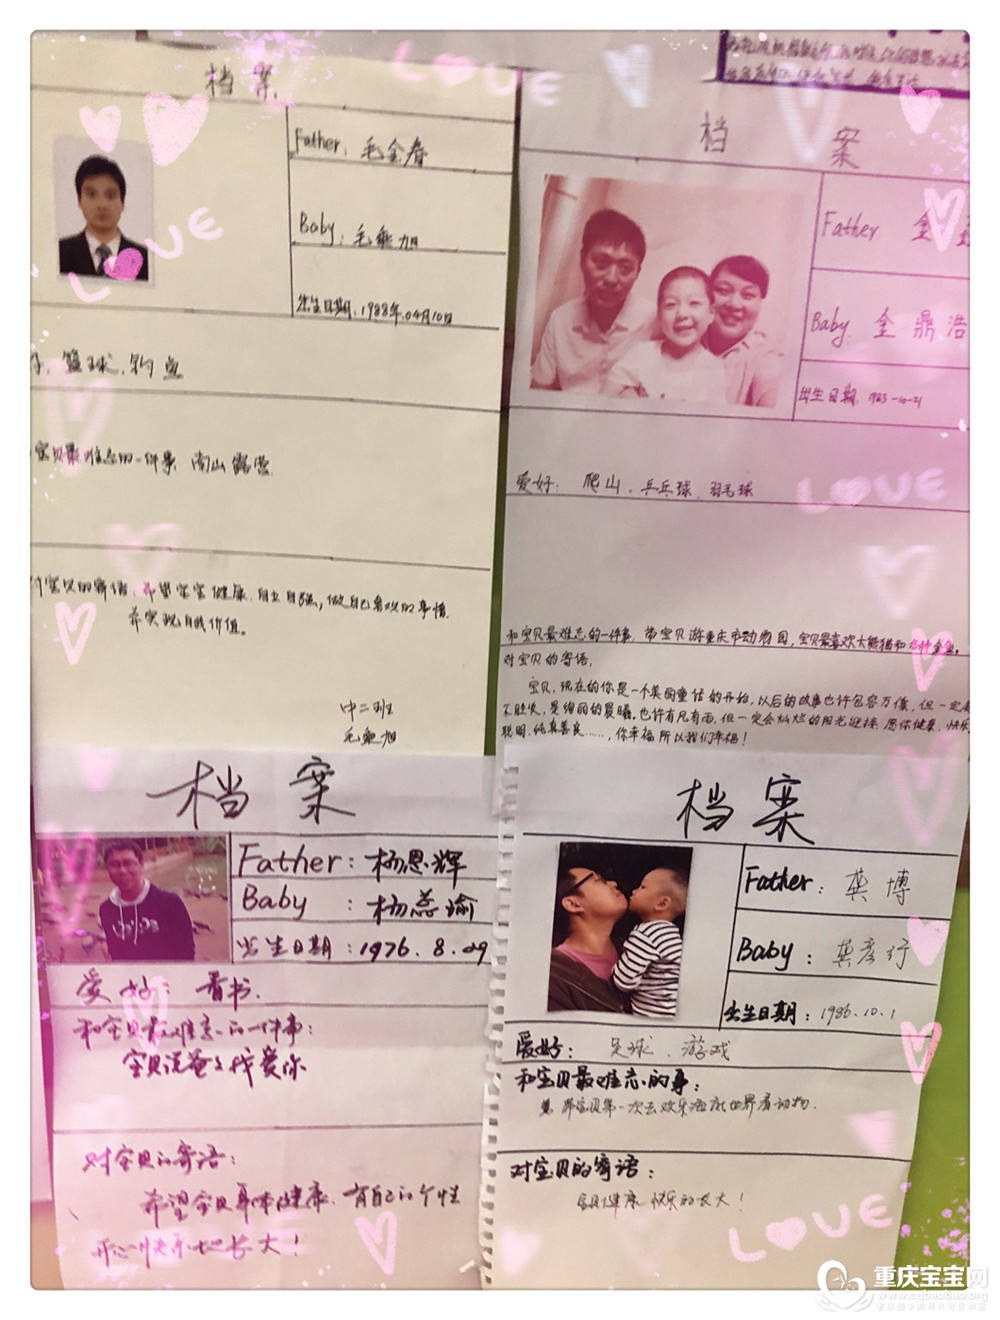 档 案
Father: 毛全春
Baby: 毛乘旭
出生日期: 1988年.04月10日
篮球.钓鱼
宝贝最难忘的一件事 南山露营
对宝贝的寄语. 希望宝宝健康.自立自强,做自己喜欢的事情.
并实现自我价值。
中二班
毛乘旭
档 案
Father 金
Baby 金鼎浩
出生日期: 1983-10-21
爱好: 爬山、乒乓球、羽毛球
和宝贝最难忘的一件事. 带宝贝游重庆市动物园,宝贝最喜欢大熊猫和各种金鱼。
对宝贝的寄语.
宝贝,现在的你是一个美丽童话的开始,以后的故事也许包容万象,但一定
不缺失,是绚丽的晨曦。也许有风有雨,但一定会灿烂的阳光迎接.愿你健康、快乐
聪明、纯真善良……,你幸福所以我们幸福!
档 案
Father: 杨恩辉
Baby : 杨蕊瑜
出生日期: 1976.8.29
爱好: 看书.
和宝贝最难忘的一件事:
宝贝说爸爸我爱你
对宝贝的寄语:
希望宝贝身体健康.有自己的个性
开心快乐地长大!
档 案
Father: 龚博
Baby: 龚彦行
出生日期: 1986.10.1
爱好: 足球、游戏
和宝贝最难忘的事:
带宝贝第一次去欢乐海底世界看动物.
对宝贝的寄语:
宝贝健康快乐的长大!
LOVE
LOVE
LOVE
LOVE
重庆宝宝网
www.cqbaobao.org